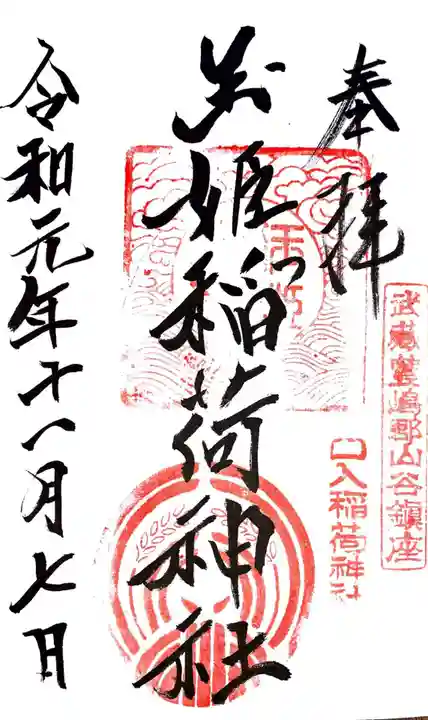 奉拝
武蔵豊嶋郡山谷鎮座
口入稲荷神社
玉姫稲荷神社
令和元年十一月七日